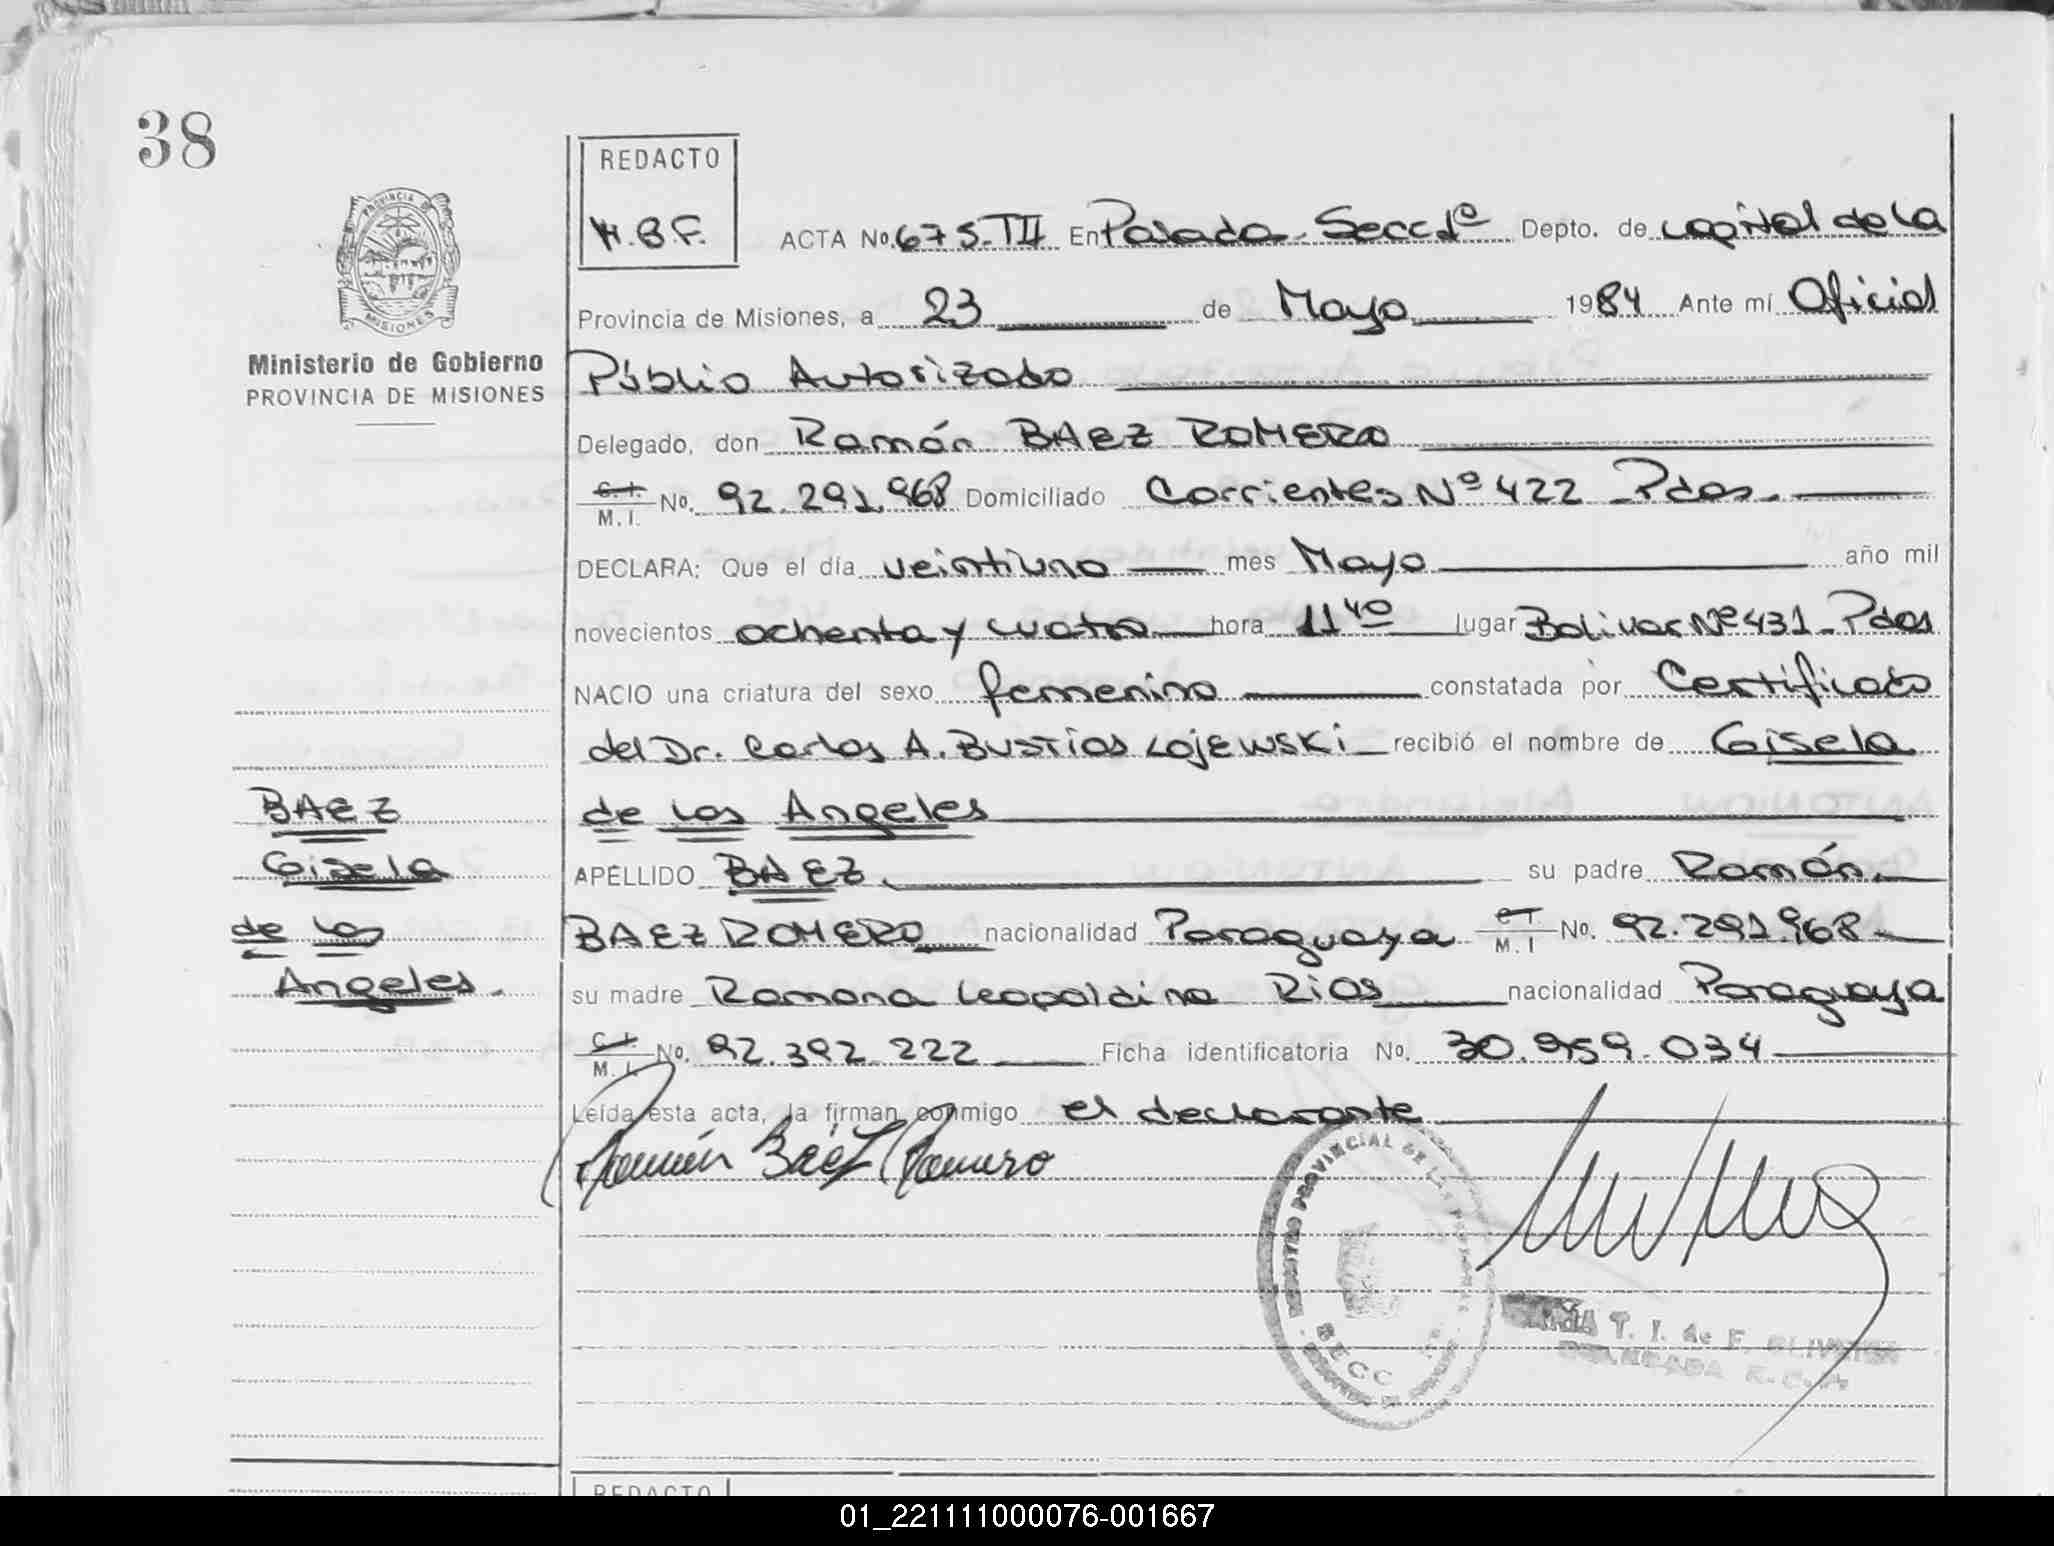 38
REDACTO
H.B.F.
PROVINCIA DE
MISIONES
Ministerio de Gobierno
PROVINCIA DE MISIONES
ACTA No. 675-TII En Posadas Secc 1ª Depto. de Capital de la
Provincia de Misiones, a 23 de Mayo 1984 Ante mí Oficial
Públio Autorizado
Delegado, don Ramón BAEZ ROMERO
C. I. M. I. No. 92.291.968 Domiciliado Corrientes Nº 422 Pdas.
DECLARA: Que el día veintiuno mes Mayo año mil
novecientos ochenta y cuatro hora 11 40 lugar Bolivar Nº 431 - Pdas
NACIO una criatura del sexo femenino constatada por Certificado
del Dr. Carlos A. BUSTIOS LOJEWSKI recibió el nombre de Gisela
de los Angeles
APELLIDO BAEZ su padre Ramón
BAEZ ROMERO nacionalidad Paraguaya C. I. M. I No. 92.291.968
su madre Ramona Leopoldina Rios nacionalidad Paraguaya
C. I. M. I. No. 92.392.222 Ficha identificatoria No. 30.959.034
Leída esta acta, la firman conmigo el declarante
Ramón Báez Romero
BAEZ
Gisela
de los
Angeles.
REGISTRO PROVINCIAL DE LAS PERSONAS
SECC
T. I. de F.
DELEGADA R.C.P.
REDACTO
01_221111000076-001667